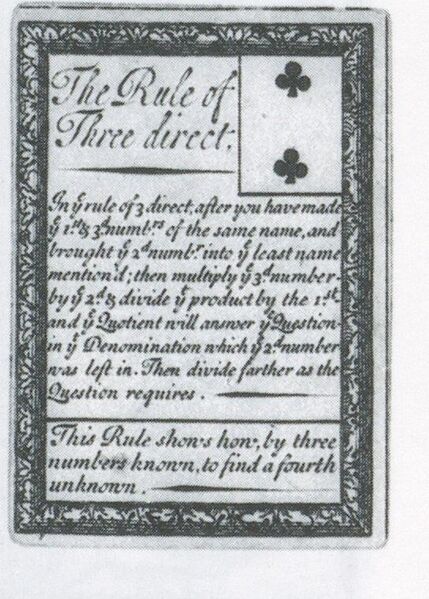 The Rule of
Three direct.
In ẏ rule of 3 direct, after you have made
ẏ 1ˢᵗ & 3ᵈ numbʳˢ of the same name, and
brought ẏ 2ᵈ numbʳ into ẏ least name
mention'd; then multiply ẏ 3ᵈ number
by ẏ 2ᵈ & divide ẏ product by the 1ˢᵗ
and ẏ Quotient will answer ẏ Question
in ẏ Denomination which ẏ 2ᵈ number
was left in. Then divide farther as the
Question requires.
This Rule shows how, by three
numbers known, to find a fourth
unknown.